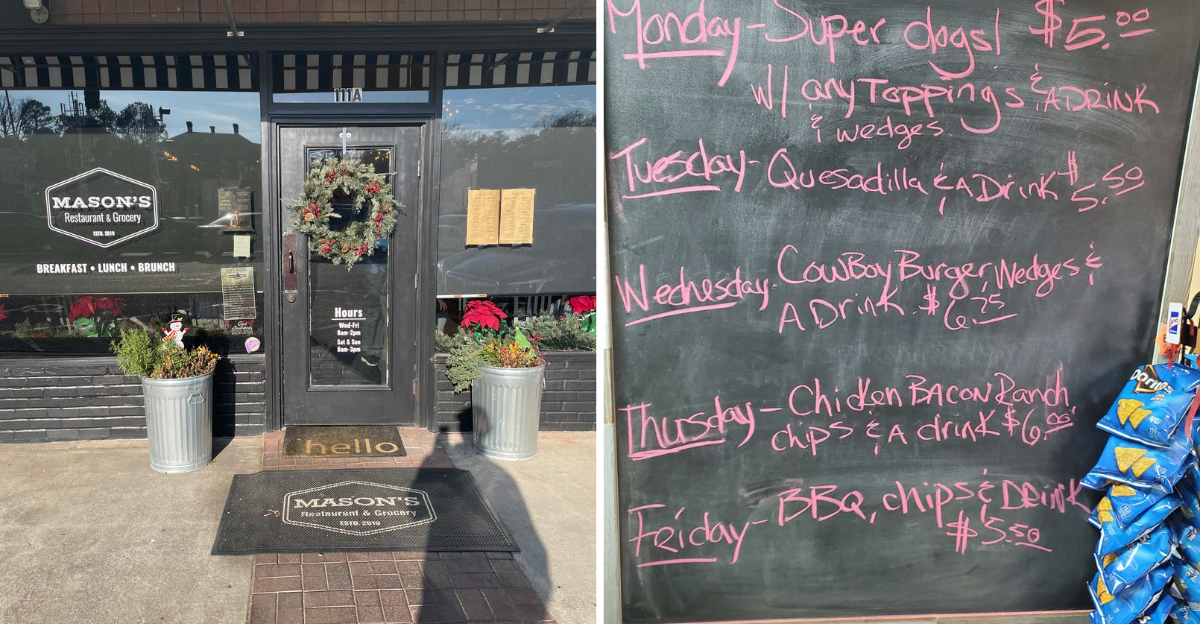 111A
MASON'S
Restaurant & Grocery
ESTD. 2019
BREAKFAST • LUNCH • BRUNCH
Hours
Wed-Fri
8am-2pm
Sat & Sun
8am-3pm
hello
MASON'S
Restaurant & Grocery
ESTD. 2019
Monday - Super dogs! $5.00
W/ any Toppings & A DRINK
& wedges
Tuesday - Quesadilla & A Drink $5.50
Wednesday - CowBoy Burger, Wedges &
A Drink $6.75
Thursday - Chicken BACON Ranch,
chips & A drink $6.00
Friday - BBQ, chips & Drink
$5.50
Doritos